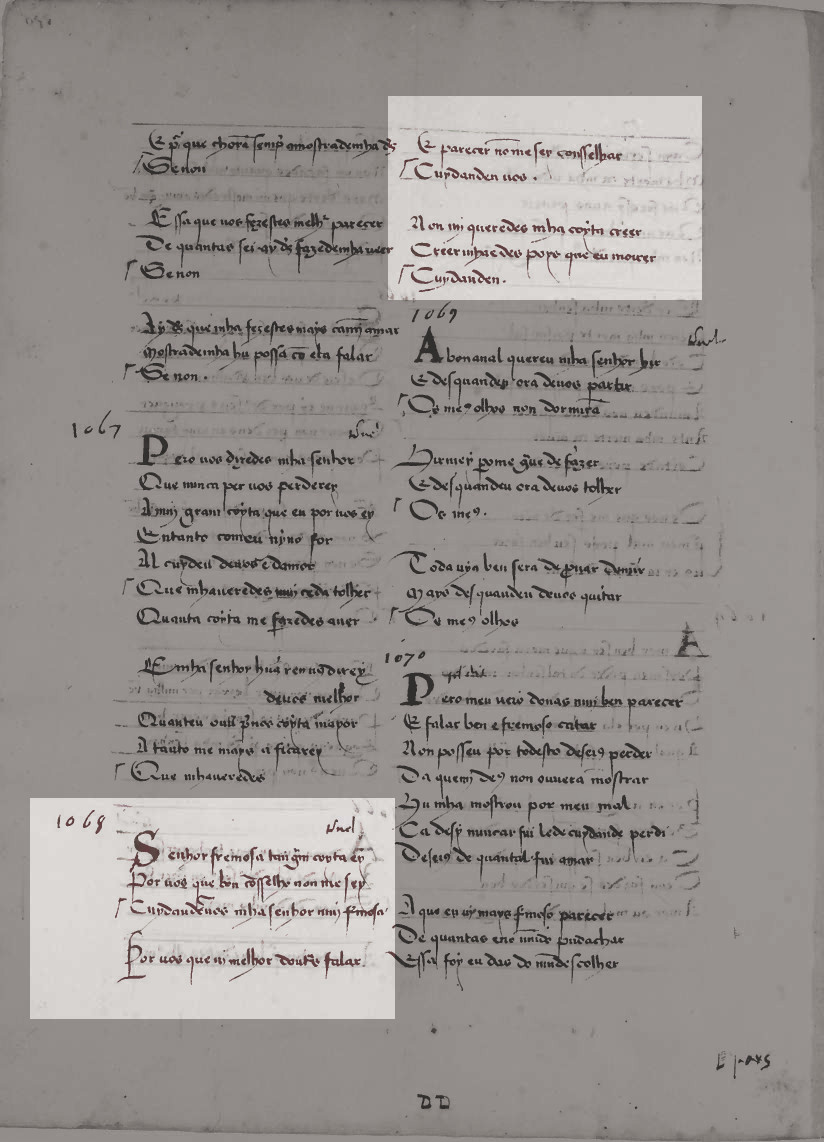 E pr̄ que chorā semp̄ amostrademha ds̄
Se non
Essa que uos fezestes melhr̄ parecer
De quantas sei ay ds̄ fazedemha ueer
Se non
Ay ds̄ que mha fezestes mays camī amar
Mostrademha hu possa cō ela falar
Se non .
1067
Pero uos dizedes mha senhor
Que nunca per uos perderey
A mui gram coyta que eu por uos ey
Entanto comeu uyuo for
Al cuydeu deuos e damor
Que mhaueredes mui ceda tolher
Quanta coyta me fazedes auer
E mha senhor huā ren uos direy
deuos melhor
Quanteu ouu' em uos coyta mayor
A tanto me mays a ficarey
Que mhaueredes
1068
Senhor fremosa tan gm̄ coyta ey
Por uos que bōn cōsselho non me sey
Cuydandeuos mha senhor mui f'mosa
Por uos que ui melhor doutrs̄ falar
E parecer nō me sey consselhar
Cuydanden uos .
Non mi queredes mha coyta creer
Creer mhaedes poys que eu morrer
Cuydanden .
1069
A bonaual quereu mha senhor hir
E des quandeu ora deuos partir
Os me9 olhos non dormirā
Hirmey pome g̃ue de fazer
E des quandeu ora deuos tolher
Os me9 .
Toda uya ben sera de prouar
Mays des quandeu deuos quitar
Os me9 olhos
1070
Pero meu ueio donas mui ben parecer
E falar ben e fremoso catar
Non posseu por todesto deseio perder
Da quem de9 non ouuera mostrar
Hu mha mostrou por meu mal
Ca desy nuncar fui lede cuydande perdi
Deseio de quantal fui amar
A que eu uy mays f'moso parecer
De quantas eno mūdo pudachar
Essa foy eu das do mūdescolher